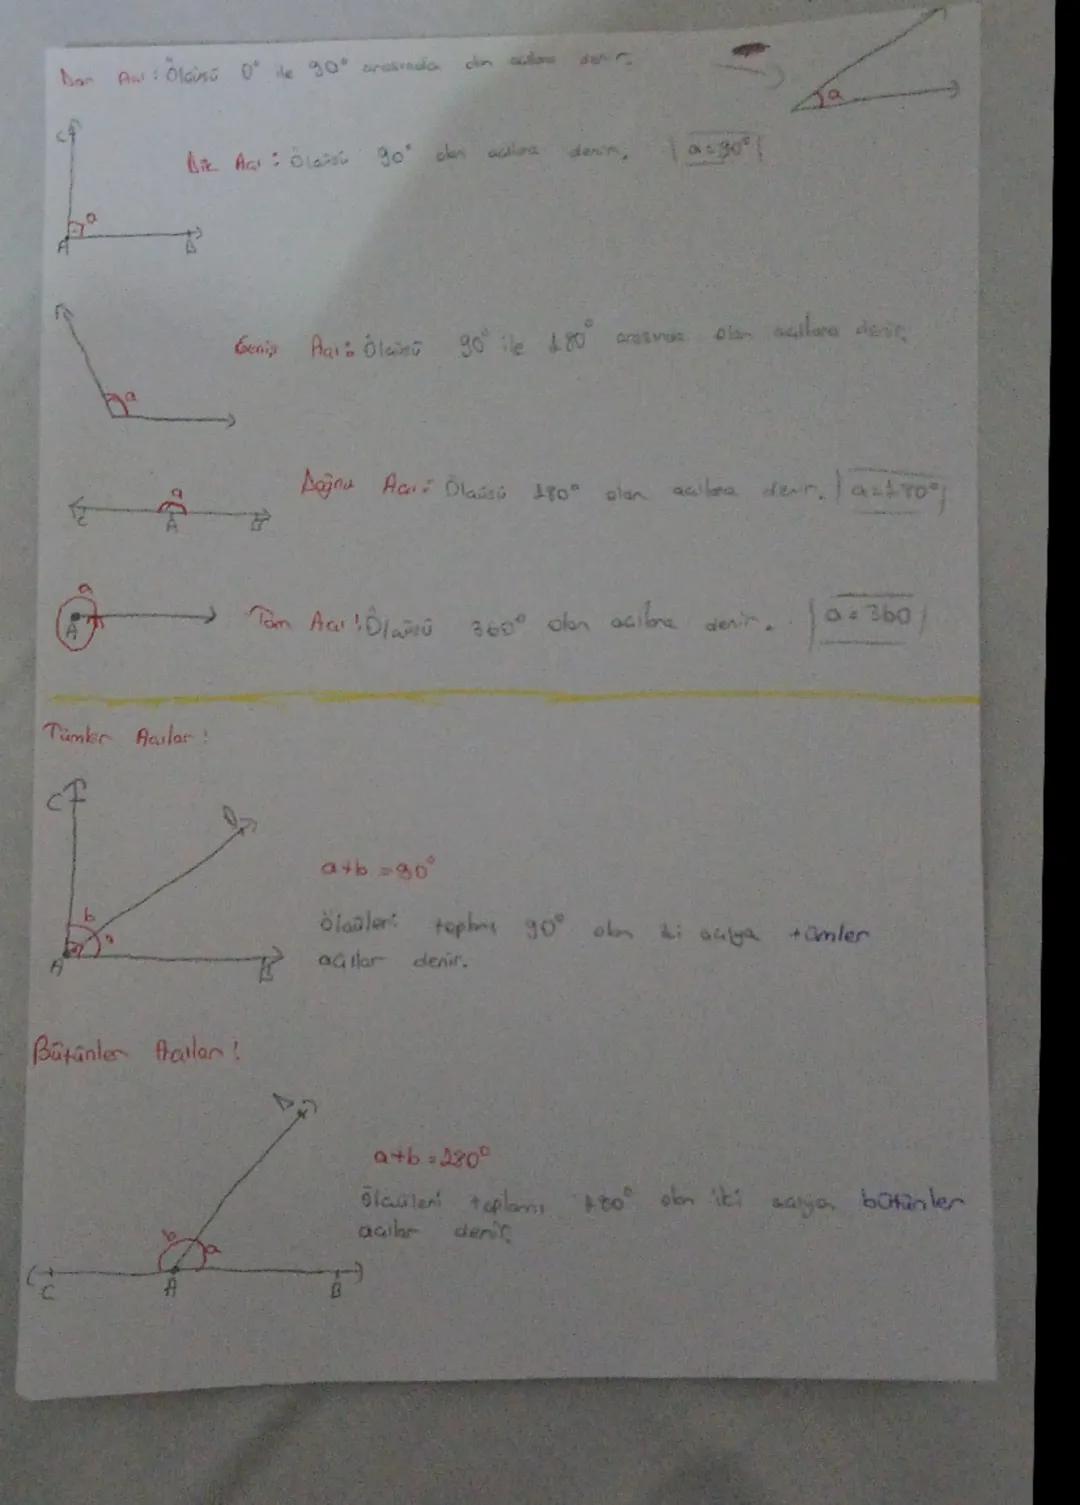 Dar Açı : Ölçüsü 0° ile 90° arasında olan açılara denir.
a
C
Dik Açı : Ölçüsü 90° olan açılara denir. a=90°
a
A B
Geniş Açı : Ölçüsü 90° ile 180° arasında olan açılara denir.
a
Doğru Açı : Ölçüsü 180° olan açılara denir. a=180°
a
C A B
a
Tam Açı : Ölçüsü 360° olan açılara denir. a=360
A
Tümler Açılar :
C
D
a+b=90°
b a
ölçüleri toplamı 90° olan iki açıya tümler
A B
açılar denir.
Bütünler Açılar :
D
a+b=180°
ölçüleri toplamı 180° olan iki açıya bütünler
açılar denir.
b a
C A B